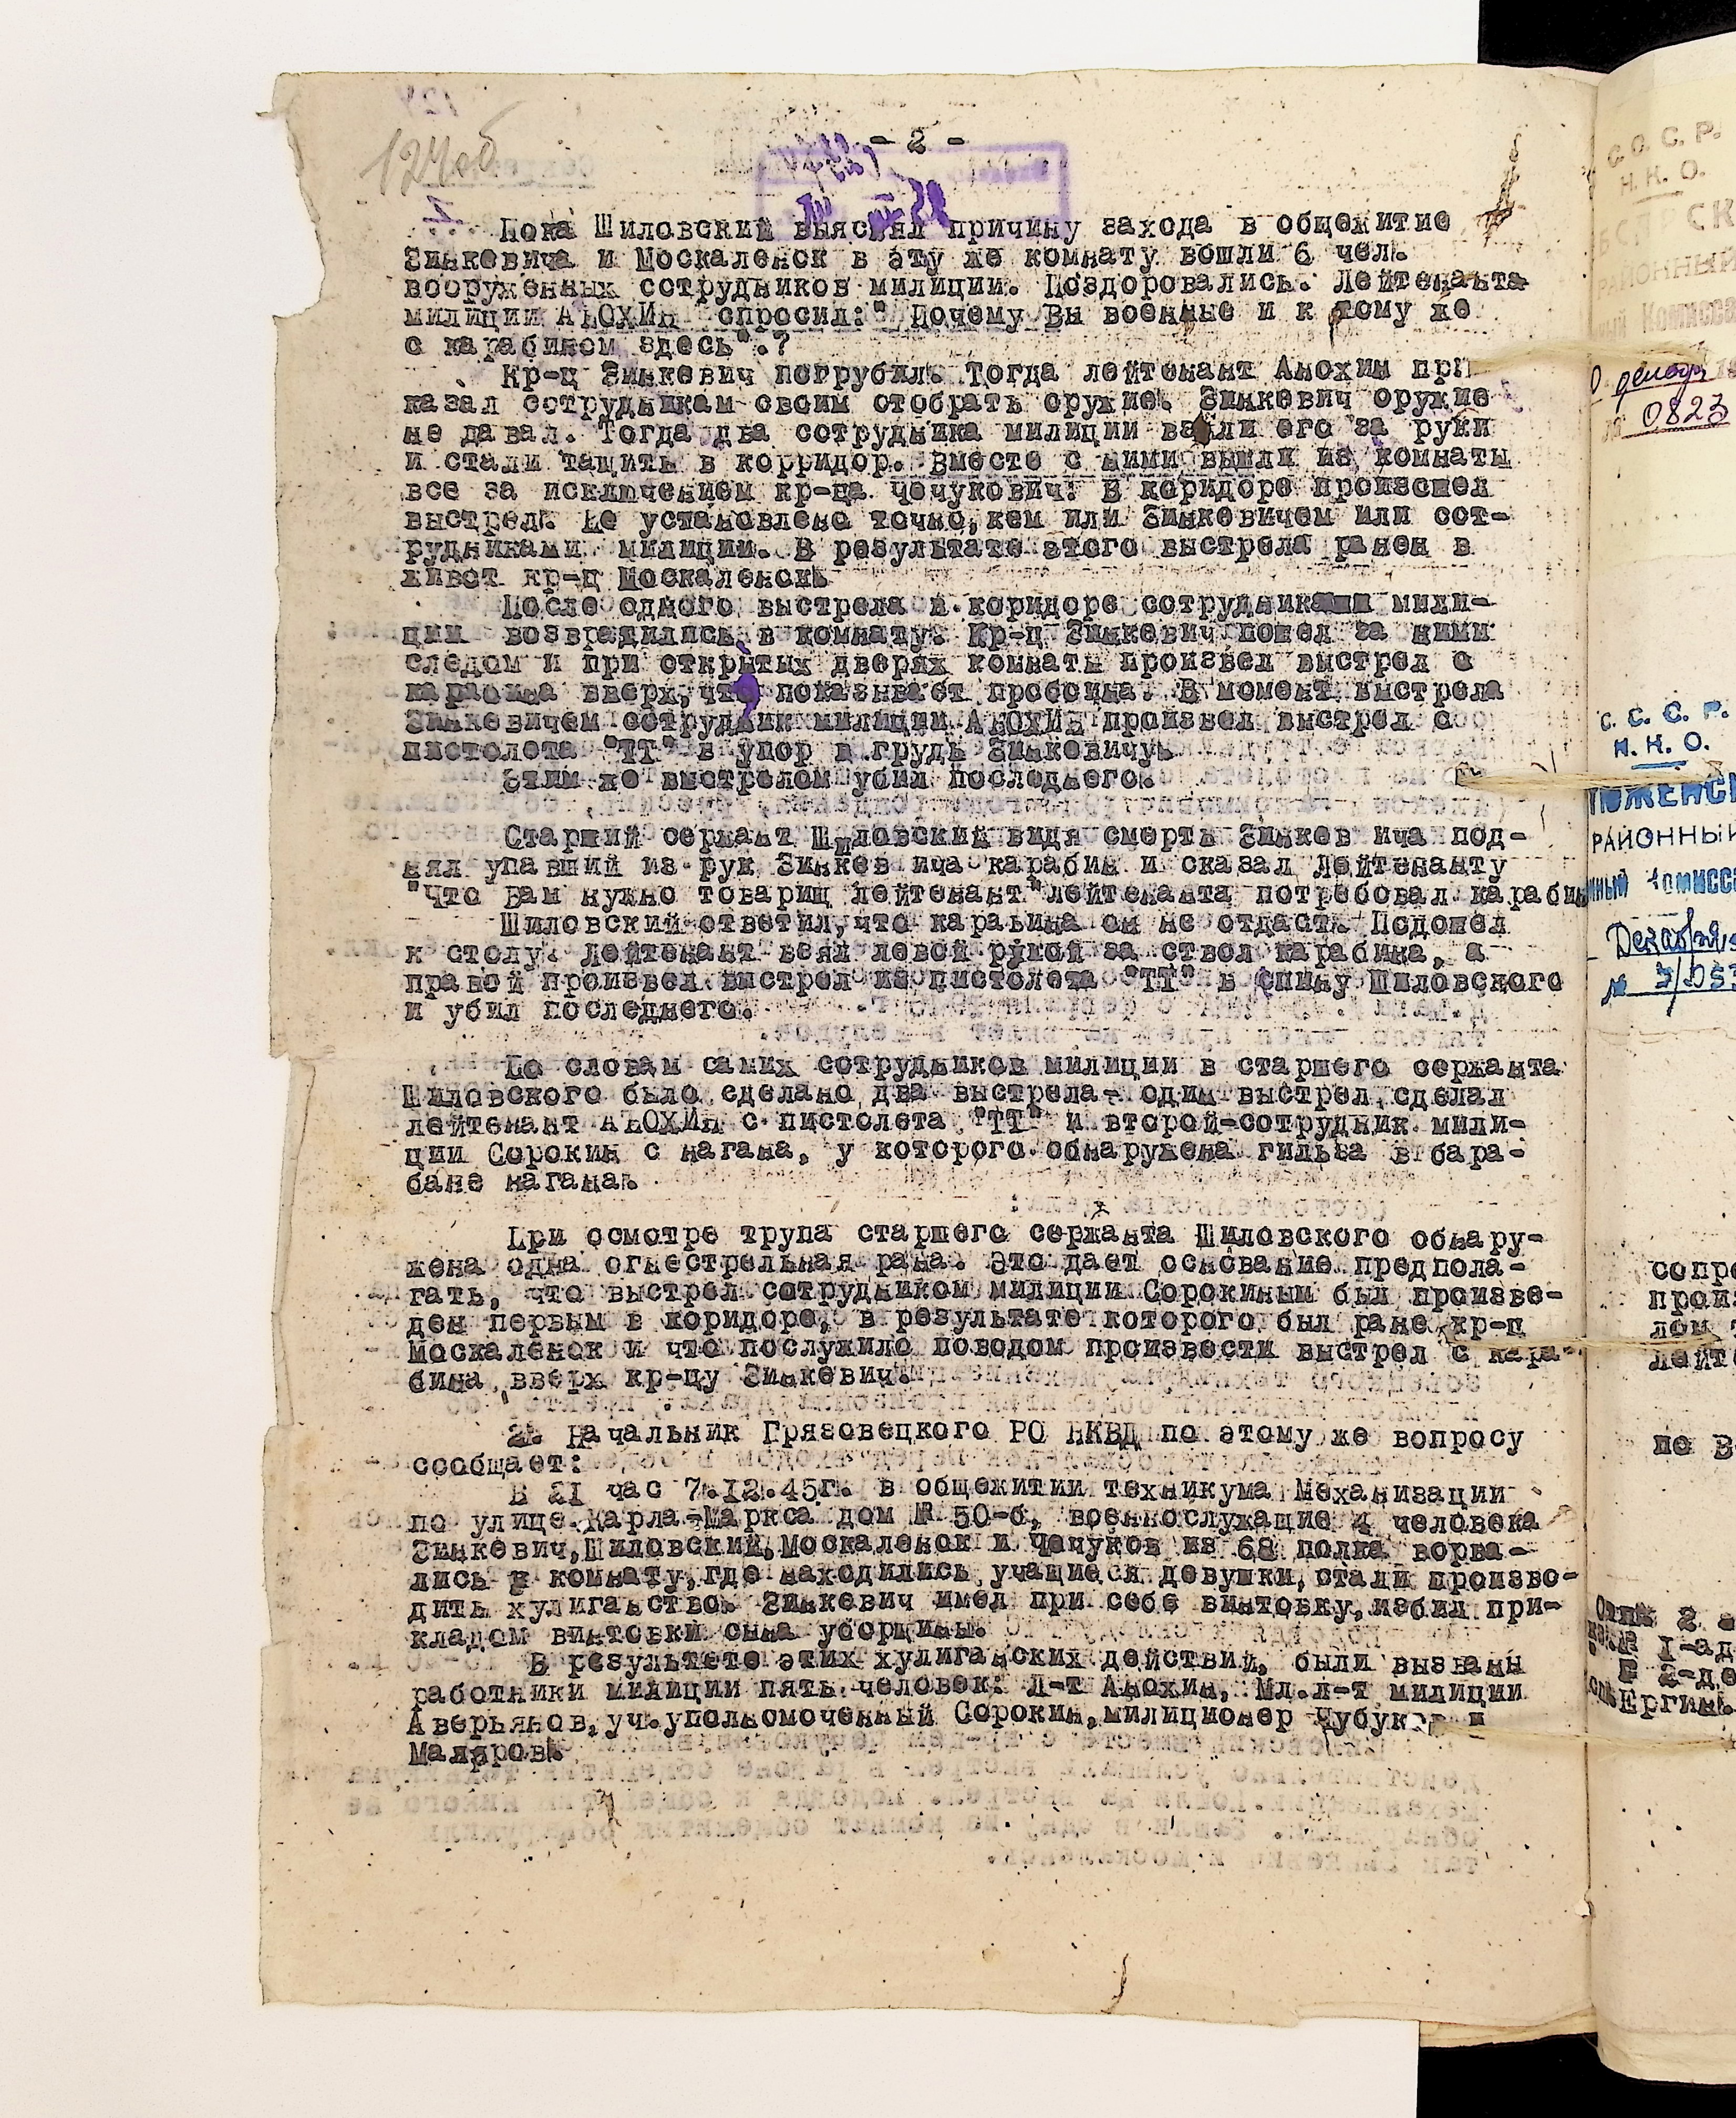 124об
- 2 -
Пока Шиловский выяснял причину захода в общежитие
Зинкевича и Москаленок в эту же комнату вошли 6 чел.
вооруженных сотрудников милиции. Поздоровались. Лейтенанта
милиции АНОХИН спросил:" Почему Вы военные и к тому же
с карабином здесь".?
Кр-ц Зинкевич погрубил. Тогда лейтенант Анохин при
казал сотрудникам своим отобрать оружие. Зинкевич оружие
не давал. Тогда два сотрудника милиции взяли его за руки
и стали тащить в корридор. Вместе с ними вышли из комнаты
все за исключением кр-ца Чечукович. В коридоре произошел
выстрел. Не установлено точно, кем или Зинкевичем или сот-
рудниками милиции. В результате этого выстрела ранен в
живот кр-ц Москаленок.
После одного выстрела в коридоре сотрудник мили-
ции возвратились в комнату. Кр-ц Зинкевич пошел за ними
следом и при открытых дверях комнаты произвел выстрел с
карабина вверх, что показывает пробоина. В момент выстрела
Зинкевичем сотрудник милиции АНОХИН произвел выстрел с
пистолета "ТТ" в упор в грудь Зинкевичу.
Этим же выстрелом убил последнего.
Старший сержант Шиловский видя смерть Зинкев ича под-
нял упавший из рук Зинкев ича карабин и сказал Лейтенанту
"Что Вам нужно товарищ лейтенант" лейтенанта потребовал карабин
Шиловский ответил, что карабина он не отдаст. Подошел
к столу. Лейтенант взял левой рукой за ствол карабина, а
правой произвел выстрел из пистолета "ТТ" в спину Шиловского
и убил последнего.
По словам самих сотрудников милиции в старшего сержанта
Шиловского было сделано два выстрела- один выстрел сделал
лейтенант АНОХИН с пистолета "ТТ" и второй-сотрудник мили-
ции Сорокин с нагана, у которого обнаружена гильза в бара-
бане нагана.
При осмотре трупа старшего сержанта Шиловского обнару-
жена одна огнестрельная рана. Это дает основание предпола-
гать, что выстрел сотрудником милиции Сорокиным был произве-
ден первым в коридоре, в результате которого был ране кр-ц
Москаленок и что послужило поводом произвести выстрел с кара-
бина вверх кр-цу Зинкевич.
2. Начальник Грязовецкого РО НКВД по этому же вопросу
сообщает:
В 21 час 7.12.45г. в общежитии техникума Механизации
по улице Карла-Маркса дом № 50-б, военнослужащие 4 человека
Зинкевич, Шиловский, Москаленок и Чечуков из 68 полка ворва-
лись в комнату, где находились учащиеся девушки, стали произво-
дить хулиганство. Зинкевич имел при себе винтовку, избил при-
кладом винтовки сына уборщицы.
В результете этих хулиганских действий, были вызваны
работники милиции пять человек: Л-т Анохин, Мл.л-т милиции
Аверьянов, уч.уполномоченный Сорокин, милиционер Чубуков и
Маляров.
С. С. С. Р.
Н. К. О.
РАЙОННЫЙ
0823
С. С. С. Р.
Н. К. О.
РАЙОННЫЙ
сопро
произ
лом
лейт
по в
2
1-ад
2-де
Ергин.